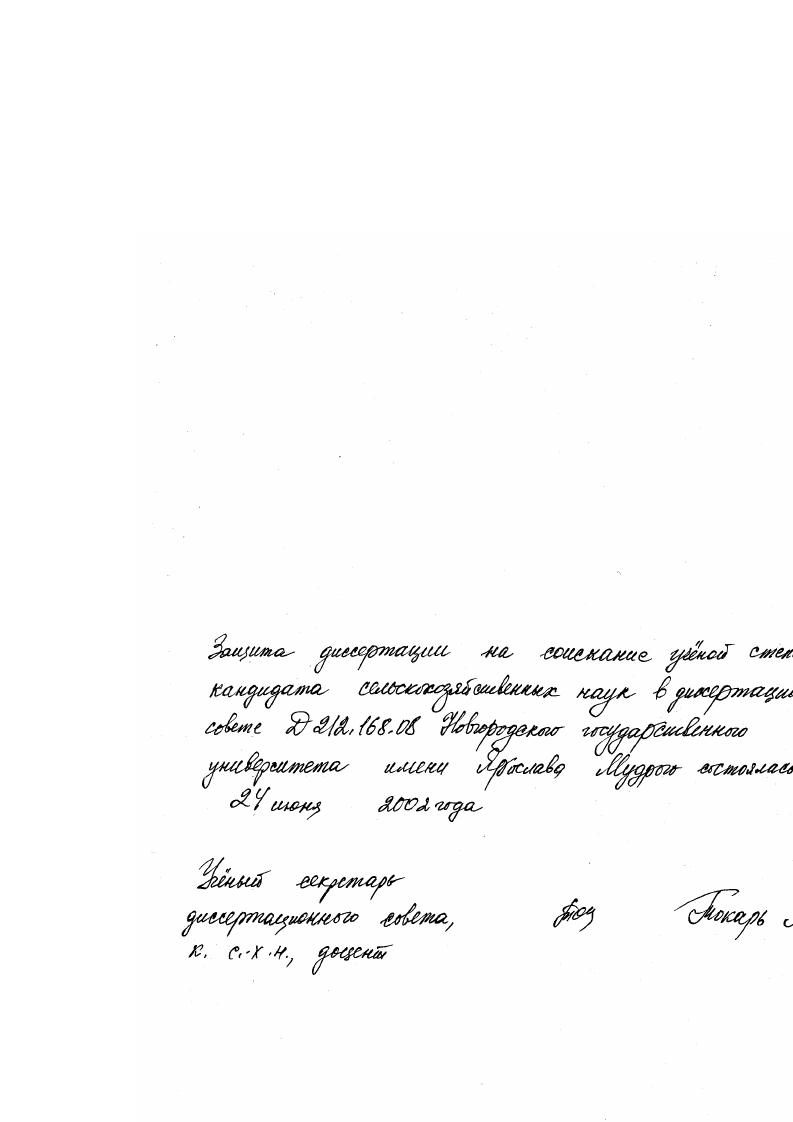 Защита диссертации на соискание учёной степ
кандидата сельскохозяйственных наук в диссертацио
совете Д 212.168.08 Новгородского государственного
университета имени Ярослава Мудрого состоялась
24 июня 2002 года
Учёный секретарь
диссертационного совета, Токарь
к. с.-х.н., доцент